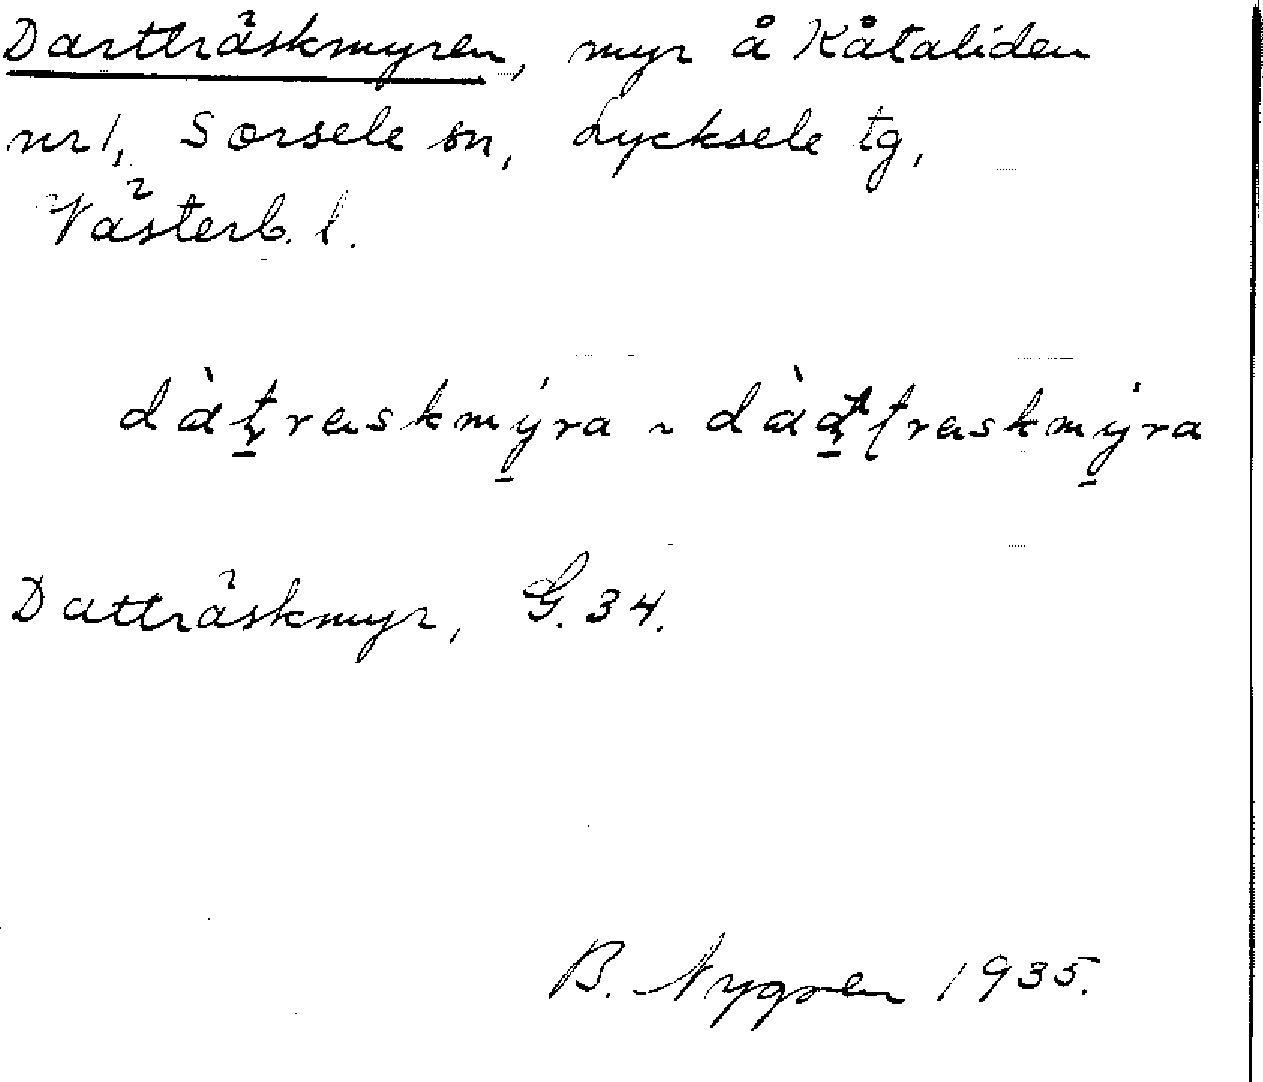 Dartträskmyren, myr å Kåtaliden
nr 1, Sorsele sn, Lycksele tg,
Västerb. l.
dàt̠raskmýra ~
Datträskmyr, G. 34.
B. Nygren 1935.